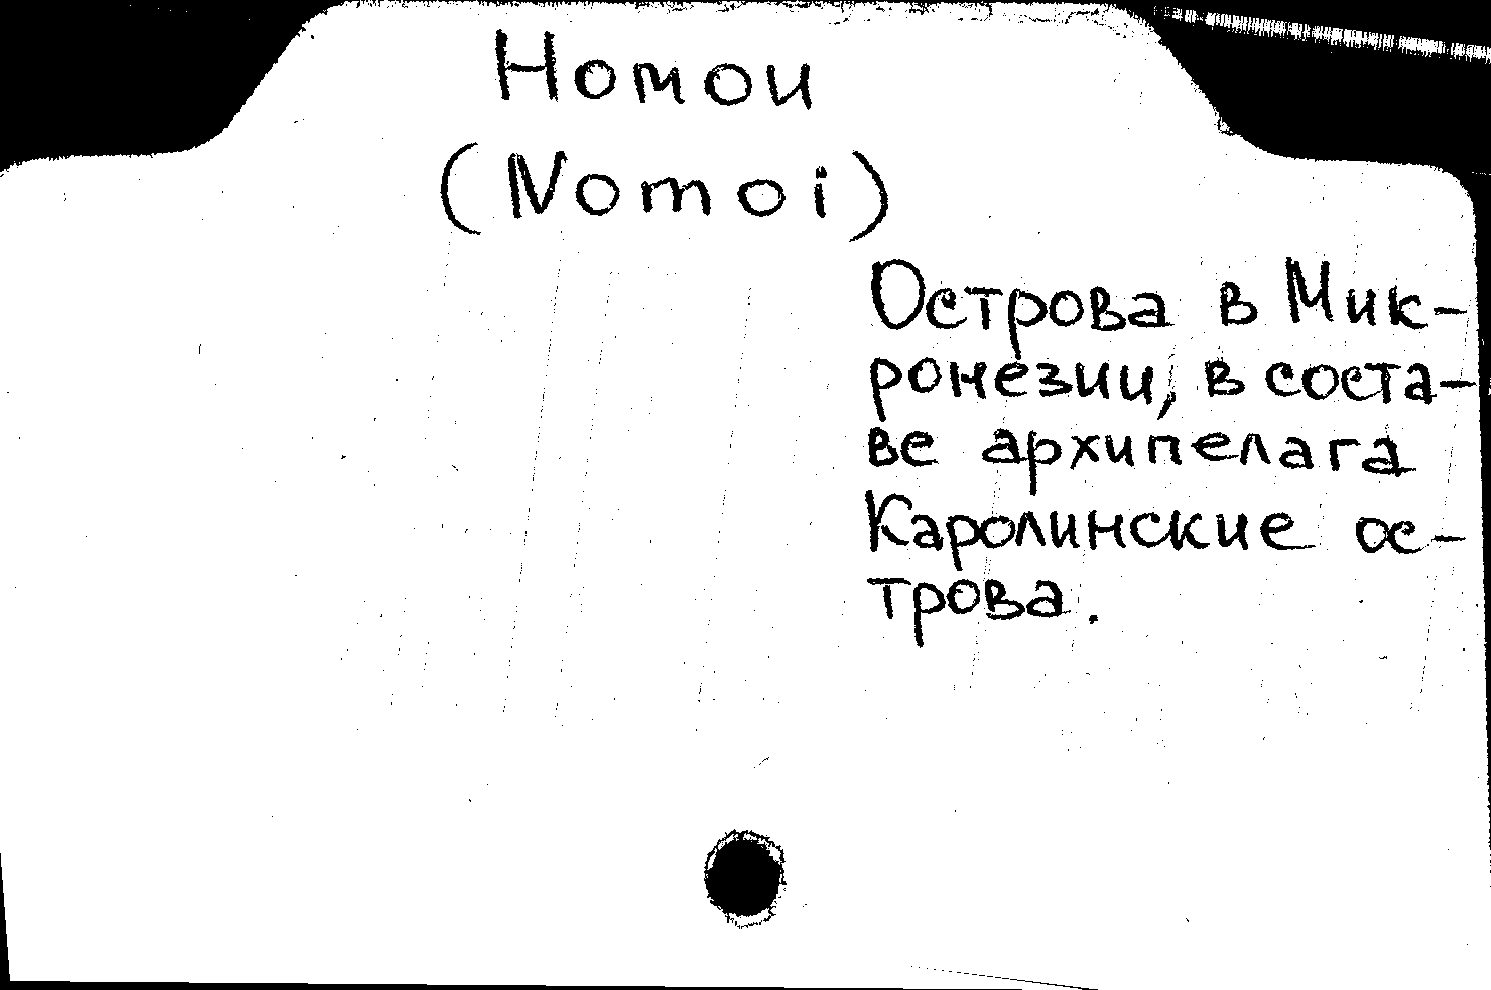 Номои
(Nomoi)
Острова в Мик-
ронезии, в соста-
ве архипелага
Каролинские ос-
трова.